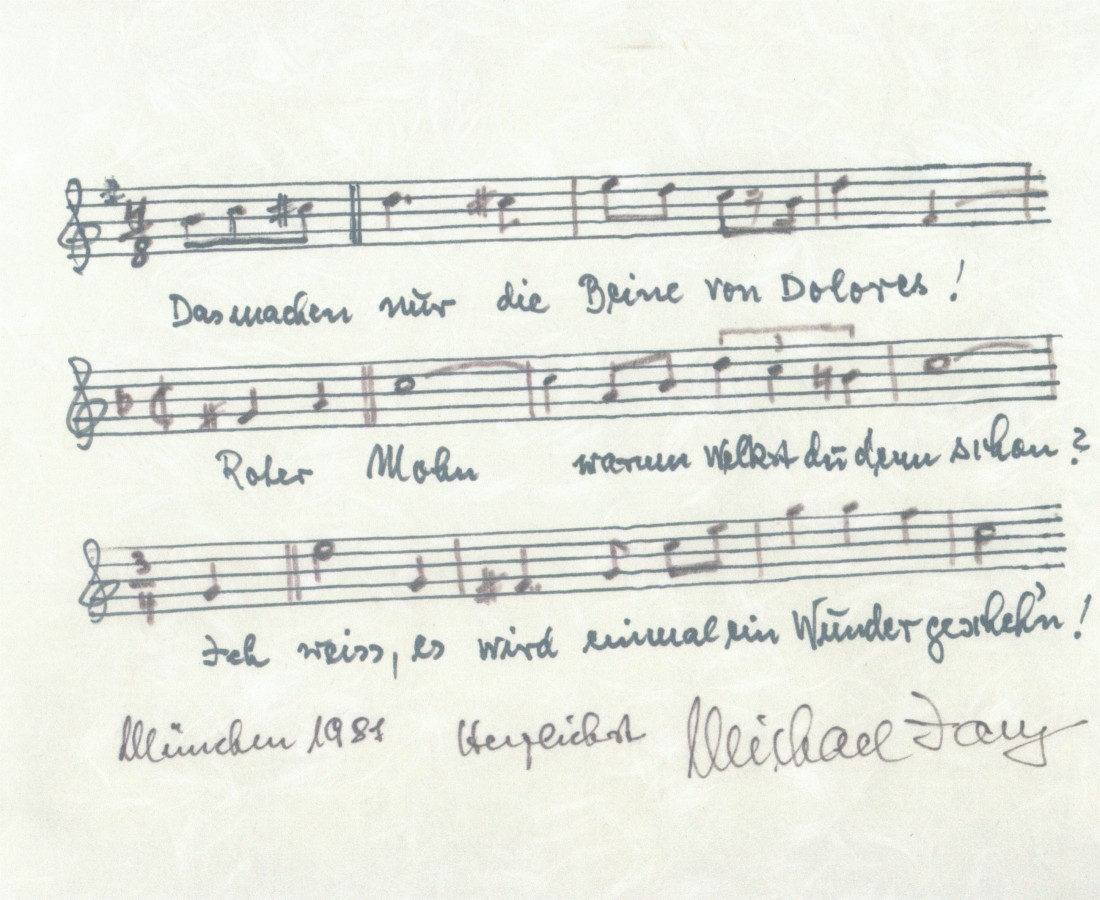 4/8
Das machen nur die Beine von Dolores!
Roter Mohn warum welkst du denn schon?
3/4
Ich weiss, es wird einmal ein Wunder gescheh'n!
München 1981 Herzlichst Michael Jary